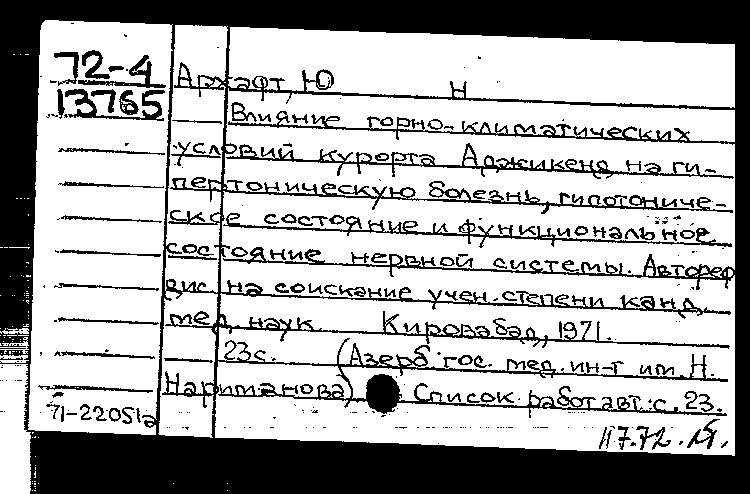 72-4
13765
Архафт, Ю Н
Влияние горно-климатических
условий курорта Аджикенд на ги-
пертоническую болезнь, гипотониче-
ское состояние и функциональное
состояние нервной системы. Автореф
дис. на соискание учен. степени канд.
мед. наук Кировабад, 1971.
23с. (Азерб. гос. мед. ин-т им. Н.
Нариманова) Список работ авт.: с. 23.
71-22051а